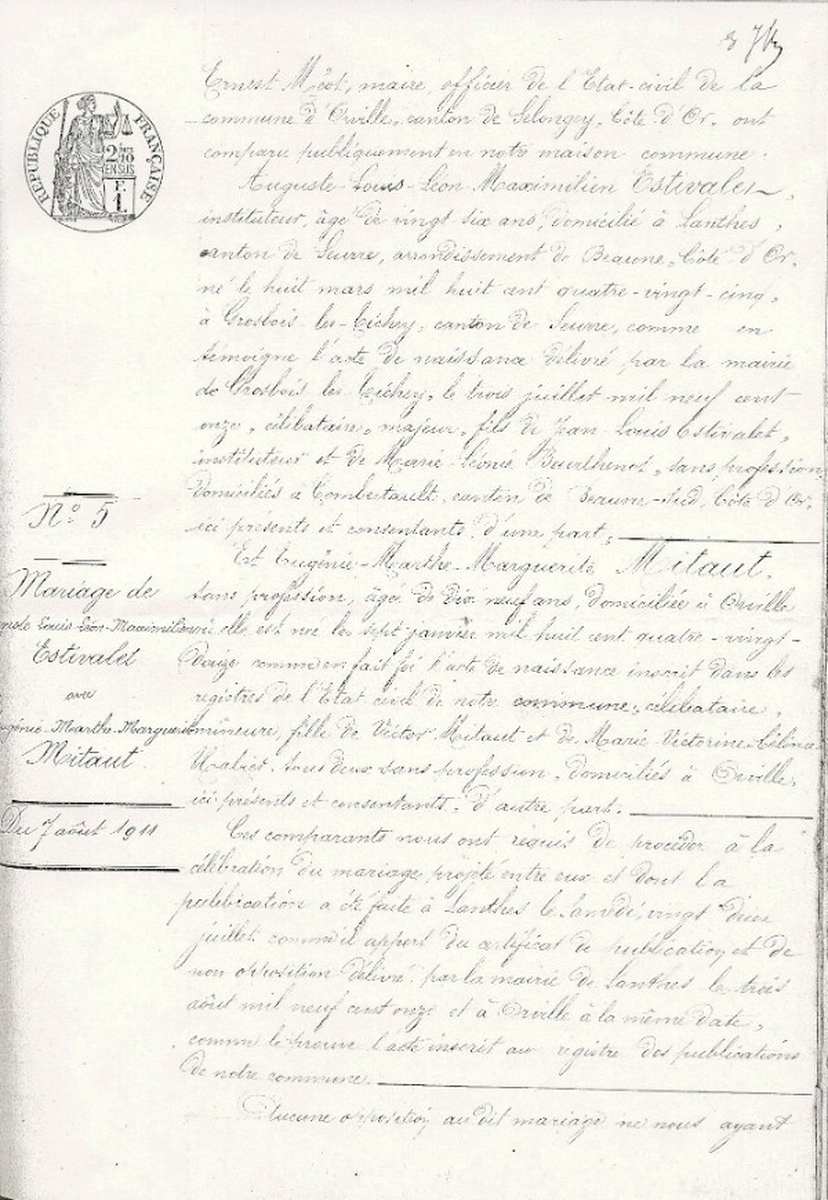 RÉPUBLIQUE FRANÇAISE
2 10
EN SUS
F.
1.
Ernest Méot, maire, officier de l'Etat-civil de la
commune d'Orville, canton de Selongey, Côte d'Or, ont
comparu publiquement en notre maison commune.
Auguste-Louis-Léon-Maximilien Estivalet,
instituteur, âgé de vingt six ans, domicilié à Lanthes,
canton de Seurre, arrondissement de Beaune, Côte d'Or,
né le huit mars mil huit cent quatre-vingt-cinq,
à Grosbois-les-Tichey, canton de Seurre, comme en
témoigne l'acte de naissance délivré par la mairie
de Grosbois les Tichey, le trois juillet mil neuf cent
onze, célibataire, majeur, fils de Jean-Louis Estivalet,
instituteur et de Marie-Léonie, sans profession,
domiciliés à Combertault, canton de Beaune-Sud, Côte d'Or,
ici présents et consentants, d'une part,
Et Eugénie-Marthe-Marguerite Mitaut,
sans profession, âgée de dix neuf ans, domiciliée à Orville
où elle est née le sept janvier mil huit cent quatre-vingt-
douze comme en fait foi l'acte de naissance inscrit dans les
registres de l'Etat civil de notre commune, célibataire,
mineure, fille de Victor Mitaut et de Marie-Victorine-Célina
tous deux sans profession, domiciliés à Orville,
ici présents et consentants, d'autre part.
Ces comparants nous ont requis de procéder à la
célébration du mariage projeté entre eux et dont la
publication a été faite à Lanthes le samedi, vingt deux
juillet comme il appert du certificat de publication et de
non opposition délivré par la mairie de Lanthes le trois
août mil neuf cent onze et à Orville à la même date,
comme le prouve l'acte inscrit au registre des publications
de notre commune.
Aucune opposition au dit mariage ne nous ayant
N° 5
Mariage de
guste Louis-Léon-Maximilien
Estivalet
avec
ugénie-Marthe-Marguerite
Mitaut
Du 7 août 1911